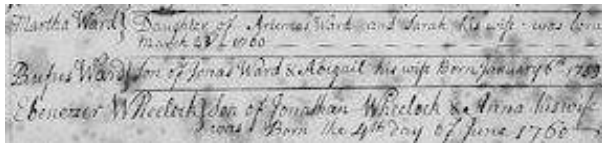 Martha Ward } Daughter of Artemas Ward and Sarah his wife was born
March 23d 1760
Rufus Ward } son of Jonas Ward & Abigail his wife Born January 6th 1759
Ebenezer Wheelock } son of Jonathan Wheelock & Anna his wife
was Born the 4th day of June 1760